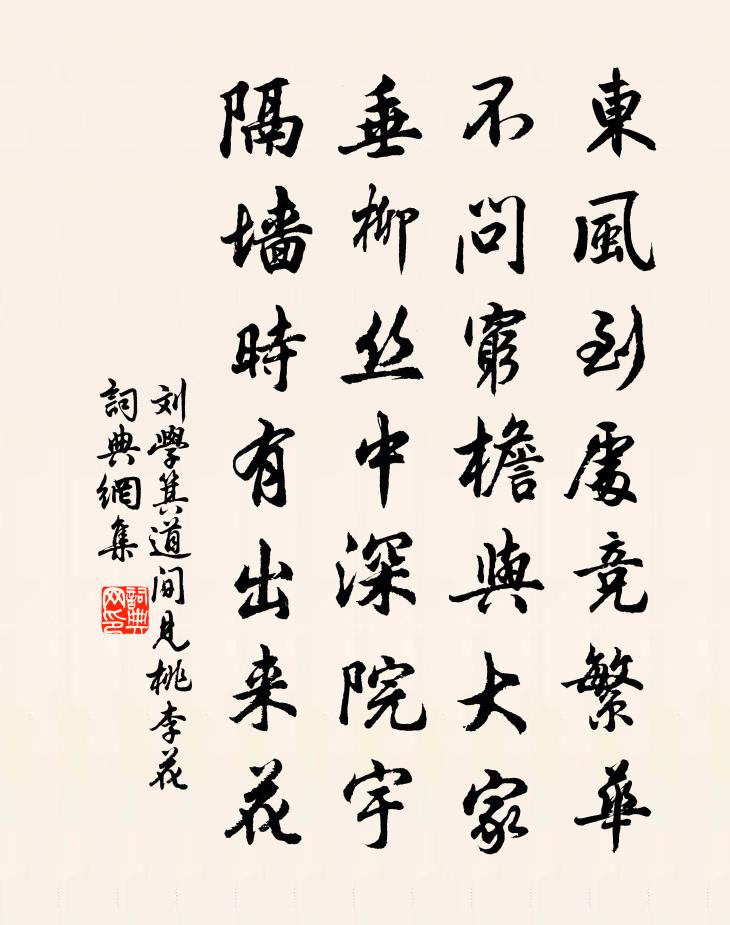 東風到處競繁華
不問窮檐與大家
垂柳丝中深院宇
隔墙時有出来花
刘學箕道间見桃李花
詞典網集
詞典网印